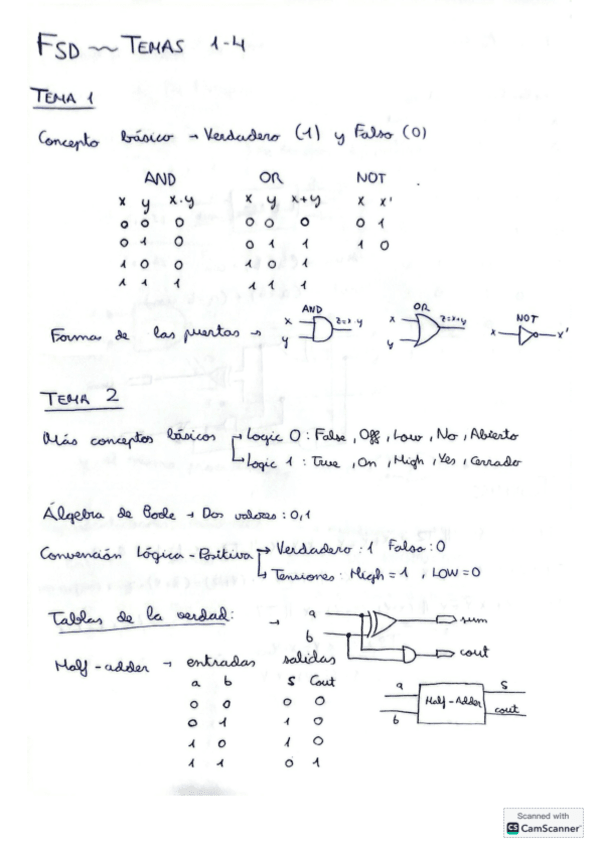 FSD ~ TEMAS 1-4
TEMA 1
Concepto básico → Verdadero (1) y Falso (0)
AND OR NOT
x y x·y x y x+y x x'
0 0 0 0 0 0 0 1
0 1 0 0 1 1 1 0
1 0 0 1 0 1
1 1 1 1 1 1
Formas de las puertas → x y AND z=x·y x y OR z=x+y x NOT x'
TEMA 2
Más conceptos básicos → Logic 0: False, Off, Low, No, Abierto
→ Logic 1: True, On, High, Yes, Cerrado
Álgebra de Boole → Dos valores: 0,1
Convención Lógica-Positiva → Verdadero: 1 Falso: 0
→ Tensiones: High = 1, LOW = 0
Tablas de la verdad: → a b sum cout
Half-adder → entradas salidas
a b S Cout
0 0 0 0
0 1 1 0
1 0 1 0
1 1 0 1
a b Half-Adder S cout
Scanned with
CS CamScanner